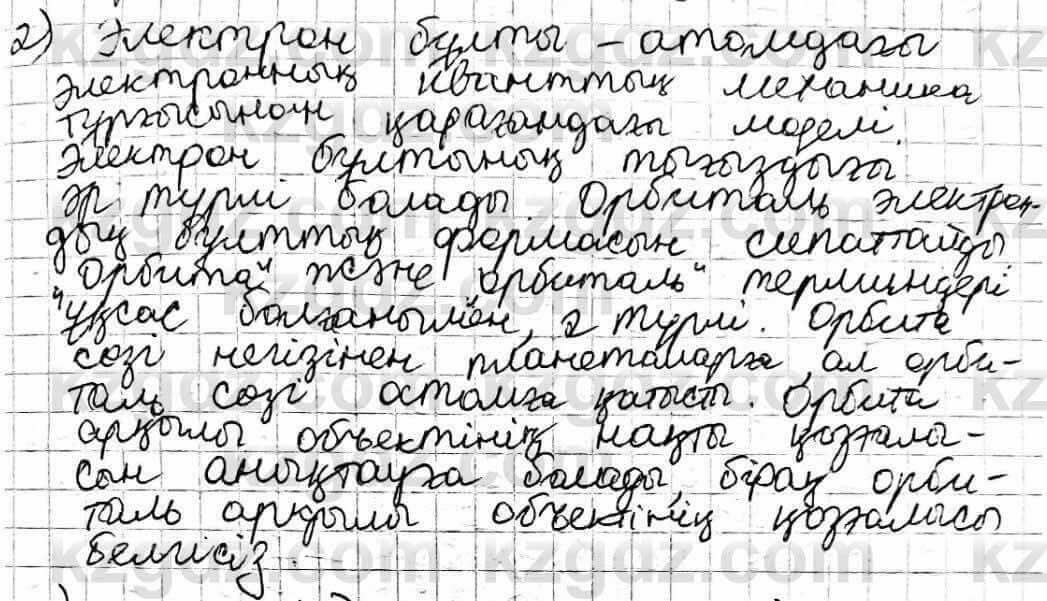 2) Электрон бұлты – атомдағы
электронның кванттық механика
тұрғысынан қарағандағы моделі.
Электрон бұлтының тығыздығы
әр түрлі болады. Орбиталь электрон-
дық бұлттың формасын сипаттайды
"Орбита" және "орбиталь" терминдері
ұқсас болғанымен, 2 түрлі. Орбита
сөзі негізінен планеталарға, ал орби-
таль сөзі атомға қатысты. Орбита
арқылы объектінің нақты қозғалы-
сын анықтауға болады, бірақ орби-
таль арқылы объектінің қозғалысы
белгісіз.